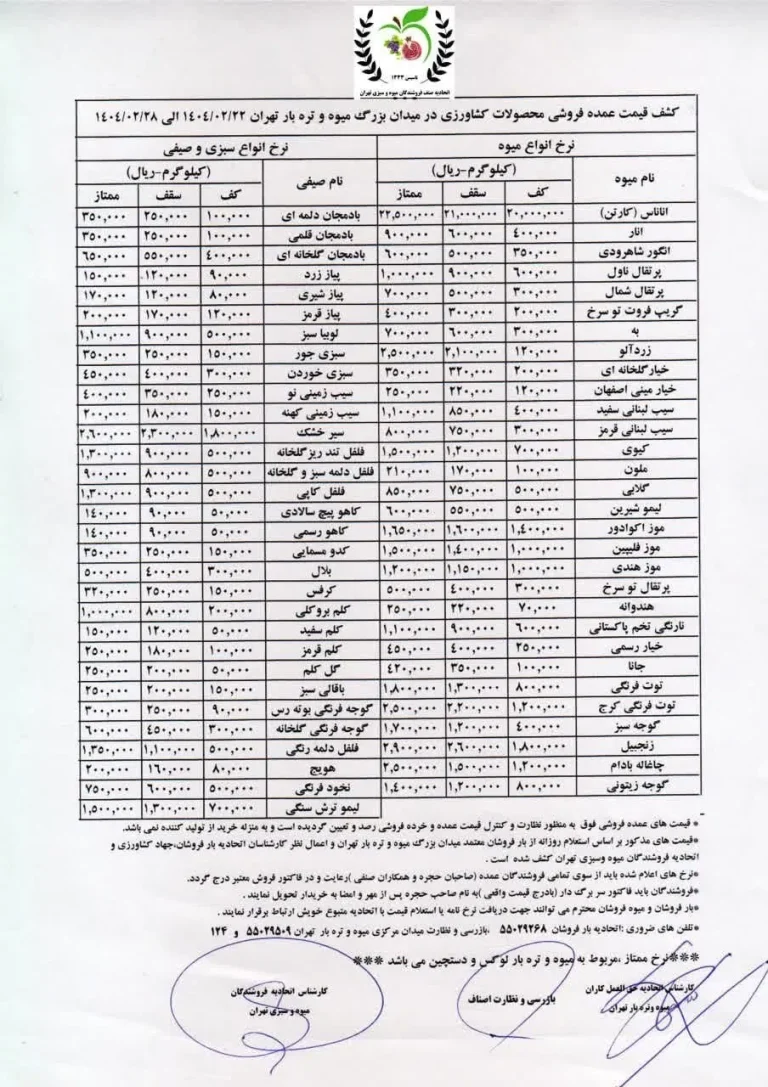 تاسیس ۱۳۴۳
اتحادیه صنف فروشندگان میوه و سبزی تهران
کشف قیمت عمده فروشی محصولات کشاورزی در میدان بزرگ میوه و تره بار تهران ۱٤۰٤/۰۲/۲۲ الی ۱٤۰٤/۰۲/۲۸
نرخ انواع میوه نرخ انواع سبزی و صیفی
نام میوه (کیلوگرم-ریال) نام صیفی (کیلوگرم-ریال)
کف سقف ممتاز کف سقف ممتاز
اناناس (کارتن) ۲۰,۰۰۰,۰۰۰ ۲۱,۰۰۰,۰۰۰ ۲۲,۵۰۰,۰۰۰ بادمجان دلمه ای ۱۰۰,۰۰۰ ۲۵۰,۰۰۰ ۳۵۰,۰۰۰
انار ٤۰۰,۰۰۰ ۶۰۰,۰۰۰ ۹۰۰,۰۰۰ بادمجان قلمی ۱۰۰,۰۰۰ ۲۵۰,۰۰۰ ۳۵۰,۰۰۰
انگور شاهرودی ۳۵۰,۰۰۰ ۵۰۰,۰۰۰ ۶۰۰,۰۰۰ بادمجان گلخانه ای ٤۰۰,۰۰۰ ۵۵۰,۰۰۰ ۶۵۰,۰۰۰
پرتقال ناول ۶۰۰,۰۰۰ ۹۰۰,۰۰۰ ۱,۰۰۰,۰۰۰ پیاز زرد ۹۰,۰۰۰ ۱۲۰,۰۰۰ ۱۵۰,۰۰۰
پرتقال شمال ۳۰۰,۰۰۰ ۵۰۰,۰۰۰ ۷۰۰,۰۰۰ پیاز شیری ۸۰,۰۰۰ ۱۲۰,۰۰۰ ۱۷۰,۰۰۰
گریپ فروت تو سرخ ۲۰۰,۰۰۰ ۳۰۰,۰۰۰ ٤۰۰,۰۰۰ پیاز قرمز ۱۲۰,۰۰۰ ۱۷۰,۰۰۰ ۲۰۰,۰۰۰
به ۳۰۰,۰۰۰ ۶۰۰,۰۰۰ ۷۰۰,۰۰۰ لوبیا سبز ۵۰۰,۰۰۰ ۹۰۰,۰۰۰ ۱,۱۰۰,۰۰۰
زردآلو ۱۲۰,۰۰۰ ۲,۱۰۰,۰۰۰ ۲,۵۰۰,۰۰۰ سبزی جور ۱۵۰,۰۰۰ ۲۵۰,۰۰۰ ۳۵۰,۰۰۰
خیارگلخانه ای ۲۰۰,۰۰۰ ۳۲۰,۰۰۰ ۳۵۰,۰۰۰ سبزی خوردن ۳۰۰,۰۰۰ ٤۰۰,۰۰۰ ٤۵۰,۰۰۰
خیار مینی اصفهان ۱۲۰,۰۰۰ ۲۲۰,۰۰۰ ۲۵۰,۰۰۰ سیب زمینی نو ۲۵۰,۰۰۰ ۳۵۰,۰۰۰ ٤۰۰,۰۰۰
سیب لبنانی سفید ٤۰۰,۰۰۰ ۸۵۰,۰۰۰ ۱,۱۰۰,۰۰۰ سیب زمینی کهنه ۱۵۰,۰۰۰ ۱۸۰,۰۰۰ ۲۰۰,۰۰۰
سیب لبنانی قرمز ۳۰۰,۰۰۰ ۷۵۰,۰۰۰ ۸۰۰,۰۰۰ سیر خشک ۱,۸۰۰,۰۰۰ ۲,۳۰۰,۰۰۰ ۲,۶۰۰,۰۰۰
کیوی ۷۰۰,۰۰۰ ۱,۲۰۰,۰۰۰ ۱,۵۰۰,۰۰۰ فلفل تند ریزگلخانه ۵۰۰,۰۰۰ ۹۰۰,۰۰۰ ۱,۳۰۰,۰۰۰
ملون ۱۰۰,۰۰۰ ۱۷۰,۰۰۰ ۲۱۰,۰۰۰ فلفل دلمه سبز و گلخانه ۵۰۰,۰۰۰ ۸۰۰,۰۰۰ ۹۰۰,۰۰۰
گلابی ۵۰۰,۰۰۰ ۷۵۰,۰۰۰ ۸۵۰,۰۰۰ فلفل کاپی ۵۰۰,۰۰۰ ۹۰۰,۰۰۰ ۱,۳۰۰,۰۰۰
لیمو شیرین ۵۰۰,۰۰۰ ۵۵۰,۰۰۰ ۶۰۰,۰۰۰ کاهو پیچ سالادی ۵۰,۰۰۰ ۹۰,۰۰۰ ۱٤۰,۰۰۰
موز اکوادور ۱,٤۰۰,۰۰۰ ۱,۶۰۰,۰۰۰ ۱,۶۵۰,۰۰۰ کاهو رسمی ۵۰,۰۰۰ ۹۰,۰۰۰ ۱٤۰,۰۰۰
موز فلیپین ۱,۰۰۰,۰۰۰ ۱,٤۰۰,۰۰۰ ۱,۵۰۰,۰۰۰ کدو مسمایی ۱۵۰,۰۰۰ ۲۵۰,۰۰۰ ۳۵۰,۰۰۰
موز هندی ۱,۰۰۰,۰۰۰ ۱,۱۵۰,۰۰۰ ۱,۲۰۰,۰۰۰ بلال ۳۰۰,۰۰۰ ٤۰۰,۰۰۰ ۵۰۰,۰۰۰
پرتقال تو سرخ ۳۰۰,۰۰۰ ٤۰۰,۰۰۰ ۵۰۰,۰۰۰ کرفس ۱۵۰,۰۰۰ ۲۵۰,۰۰۰ ۳۲۰,۰۰۰
هندوانه ۷۰,۰۰۰ ۲۲۰,۰۰۰ ۲۵۰,۰۰۰ کلم بروکلی ۲۰۰,۰۰۰ ۸۰۰,۰۰۰ ۱,۰۰۰,۰۰۰
نارنگی تخم پاکستانی ۶۰۰,۰۰۰ ۹۰۰,۰۰۰ ۱,۱۰۰,۰۰۰ کلم سفید ۵۰,۰۰۰ ۱۲۰,۰۰۰ ۱۵۰,۰۰۰
خیار رسمی ۲۵۰,۰۰۰ ٤۰۰,۰۰۰ ٤۵۰,۰۰۰ کلم قرمز ۱۰۰,۰۰۰ ۱۸۰,۰۰۰ ۲۵۰,۰۰۰
جانا ۱۰۰,۰۰۰ ۳۵۰,۰۰۰ ٤۲۰,۰۰۰ گل کلم ۵۰,۰۰۰ ۲۰۰,۰۰۰ ۲۵۰,۰۰۰
توت فرنگی ۸۰۰,۰۰۰ ۱,۳۰۰,۰۰۰ ۱,۸۰۰,۰۰۰ باقالی سبز ۱۵۰,۰۰۰ ۲۰۰,۰۰۰ ۲۵۰,۰۰۰
توت فرنگی کرج ۱,۲۰۰,۰۰۰ ۲,۲۰۰,۰۰۰ ۲,۵۰۰,۰۰۰ گوجه فرنگی بوته رس ۹۰,۰۰۰ ۲۵۰,۰۰۰ ۳۰۰,۰۰۰
گوجه سبز ٤۰۰,۰۰۰ ۱,۲۰۰,۰۰۰ ۱,۷۰۰,۰۰۰ گوجه فرنگی گلخانه ۳۰۰,۰۰۰ ٤۵۰,۰۰۰ ۶۰۰,۰۰۰
زنجبیل ۱,۸۰۰,۰۰۰ ۲,۶۰۰,۰۰۰ ۲,۹۰۰,۰۰۰ فلفل دلمه رنگی ۵۰۰,۰۰۰ ۱,۱۰۰,۰۰۰ ۱,۳۵۰,۰۰۰
چاغاله بادام ۱,۲۰۰,۰۰۰ ۱,۵۰۰,۰۰۰ ۲,۵۰۰,۰۰۰ هویج ۸۰,۰۰۰ ۱۶۰,۰۰۰ ۲۰۰,۰۰۰
گوجه زیتونی ۸۰۰,۰۰۰ ۱,۲۰۰,۰۰۰ ۱,٤۰۰,۰۰۰ نخود فرنگی ۵۰۰,۰۰۰ ۶۰۰,۰۰۰ ۷۵۰,۰۰۰
لیمو ترش سنگی ۷۰۰,۰۰۰ ۱,۳۰۰,۰۰۰ ۱,۵۰۰,۰۰۰
* قیمت های عمده فروشی فوق به منظور نظارت و کنترل قیمت عمده و خرده فروشی رصد و تعیین گردیده است و به منزله خرید از تولید کننده نمی باشد.
*قیمت های مذکور بر اساس استعلام روزانه از بار فروشان معتمد میدان بزرگ میوه و تره بار تهران و اعمال نظر کارشناسان اتحادیه بار فروشان،جهاد کشاورزی و
اتحادیه فروشندگان میوه وسبزی تهران کشف شده است .
*نرخ های اعلام شده باید از سوی تمامی فروشندگان عمده (صاحبان حجره و همکاران صنفی )رعایت و در فاکتور فروش معتبر درج گردد.
*فروشندگان باید فاکتور سر برگ دار (بادرج قیمت واقعی )به نام صاحب حجره پس از مهر و امضا به خریدار تحویل نمایند .
*بار فروشان و میوه فروشان محترم می توانند جهت دریافت نرخ نامه یا استعلام قیمت با اتحادیه متبوع خویش ارتباط برقرار نمایند .
*تلفن های ضروری :اتحادیه بار فروشان ۵۵۰۲۹۲۶۸ ،بازرسی و نظارت میدان مرکزی میوه و تره بار تهران ۵۵۰۲۹۵۰۹ و ۱۲۴
***نرخ ممتاز ،مربوط به میوه و تره بار لوکس و دستچین می باشد ***
کارشناس اتحادیه حق العمل کاران
میوه وتره بار تهران
بازرسی و نظارت اصناف
کارشناس اتحادیه فروشندگان
میوه و سبزی تهران